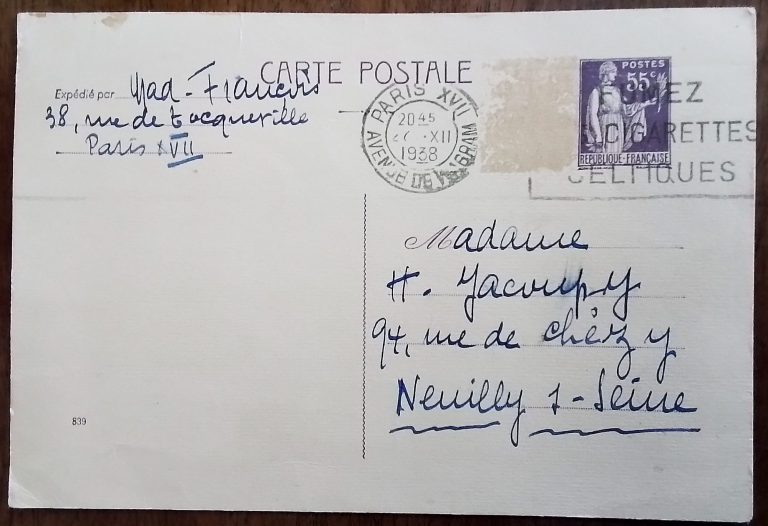 CARTE POSTALE
Expédié par Mad - François
38, rue de Tocqueville
Paris XVII
PARIS XVII
20 45
XII
1938
AVENUE DE WAGRAM
POSTES
55c
REPUBLIQUE-FRANÇAISE
FUMEZ
CIGARETTES
CELTIQUES
Madame
H. Yacoupy
94, rue de Chézy
Neuilly s-Seine
839